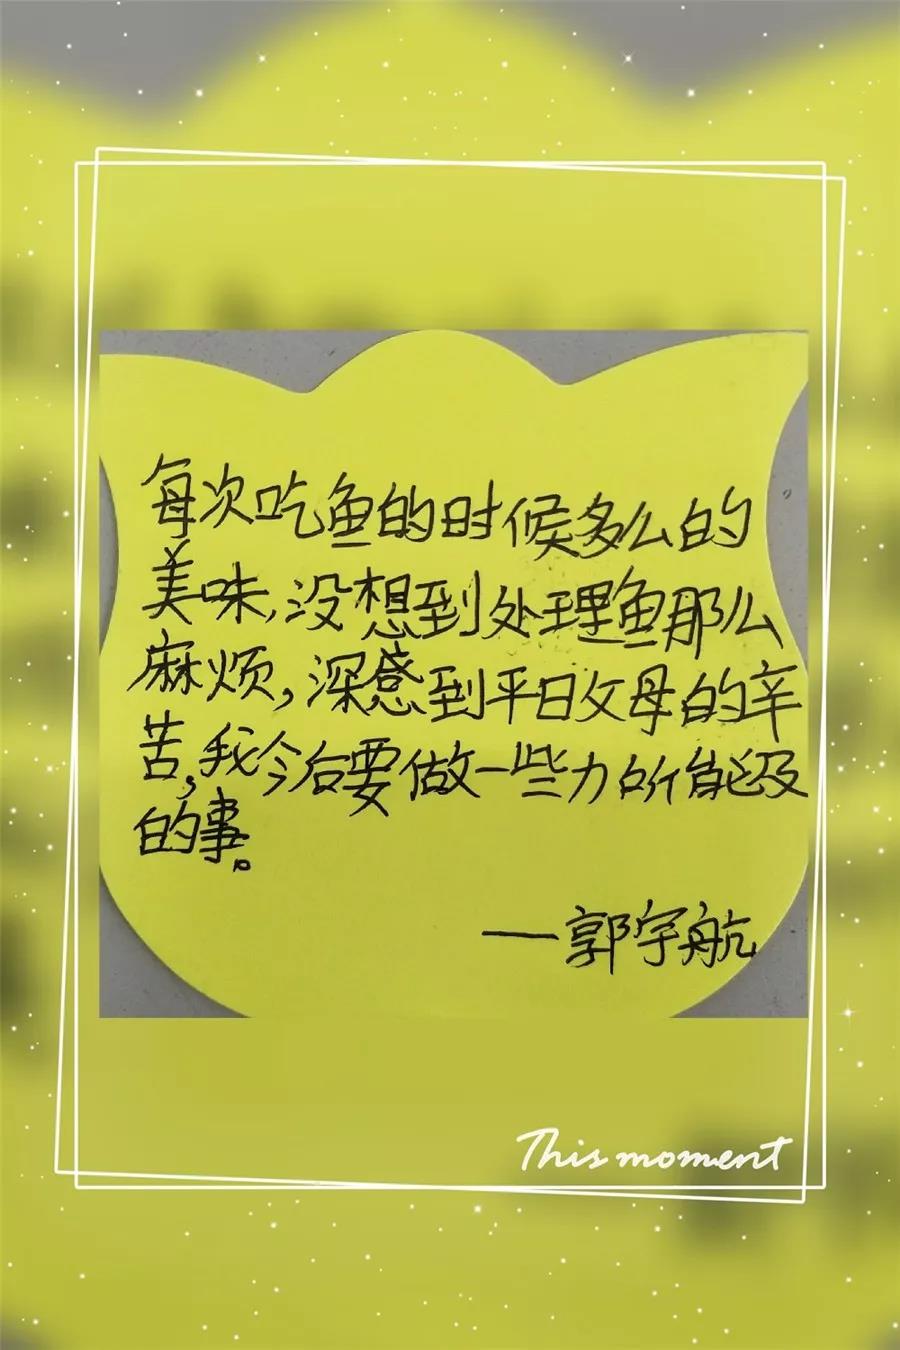 每次吃鱼的时候多么的
美味,没想到处理鱼那么
麻烦,深感到平日父母的辛
苦,我今后要做一些力所能及
的事。
—郭宇航
This moment